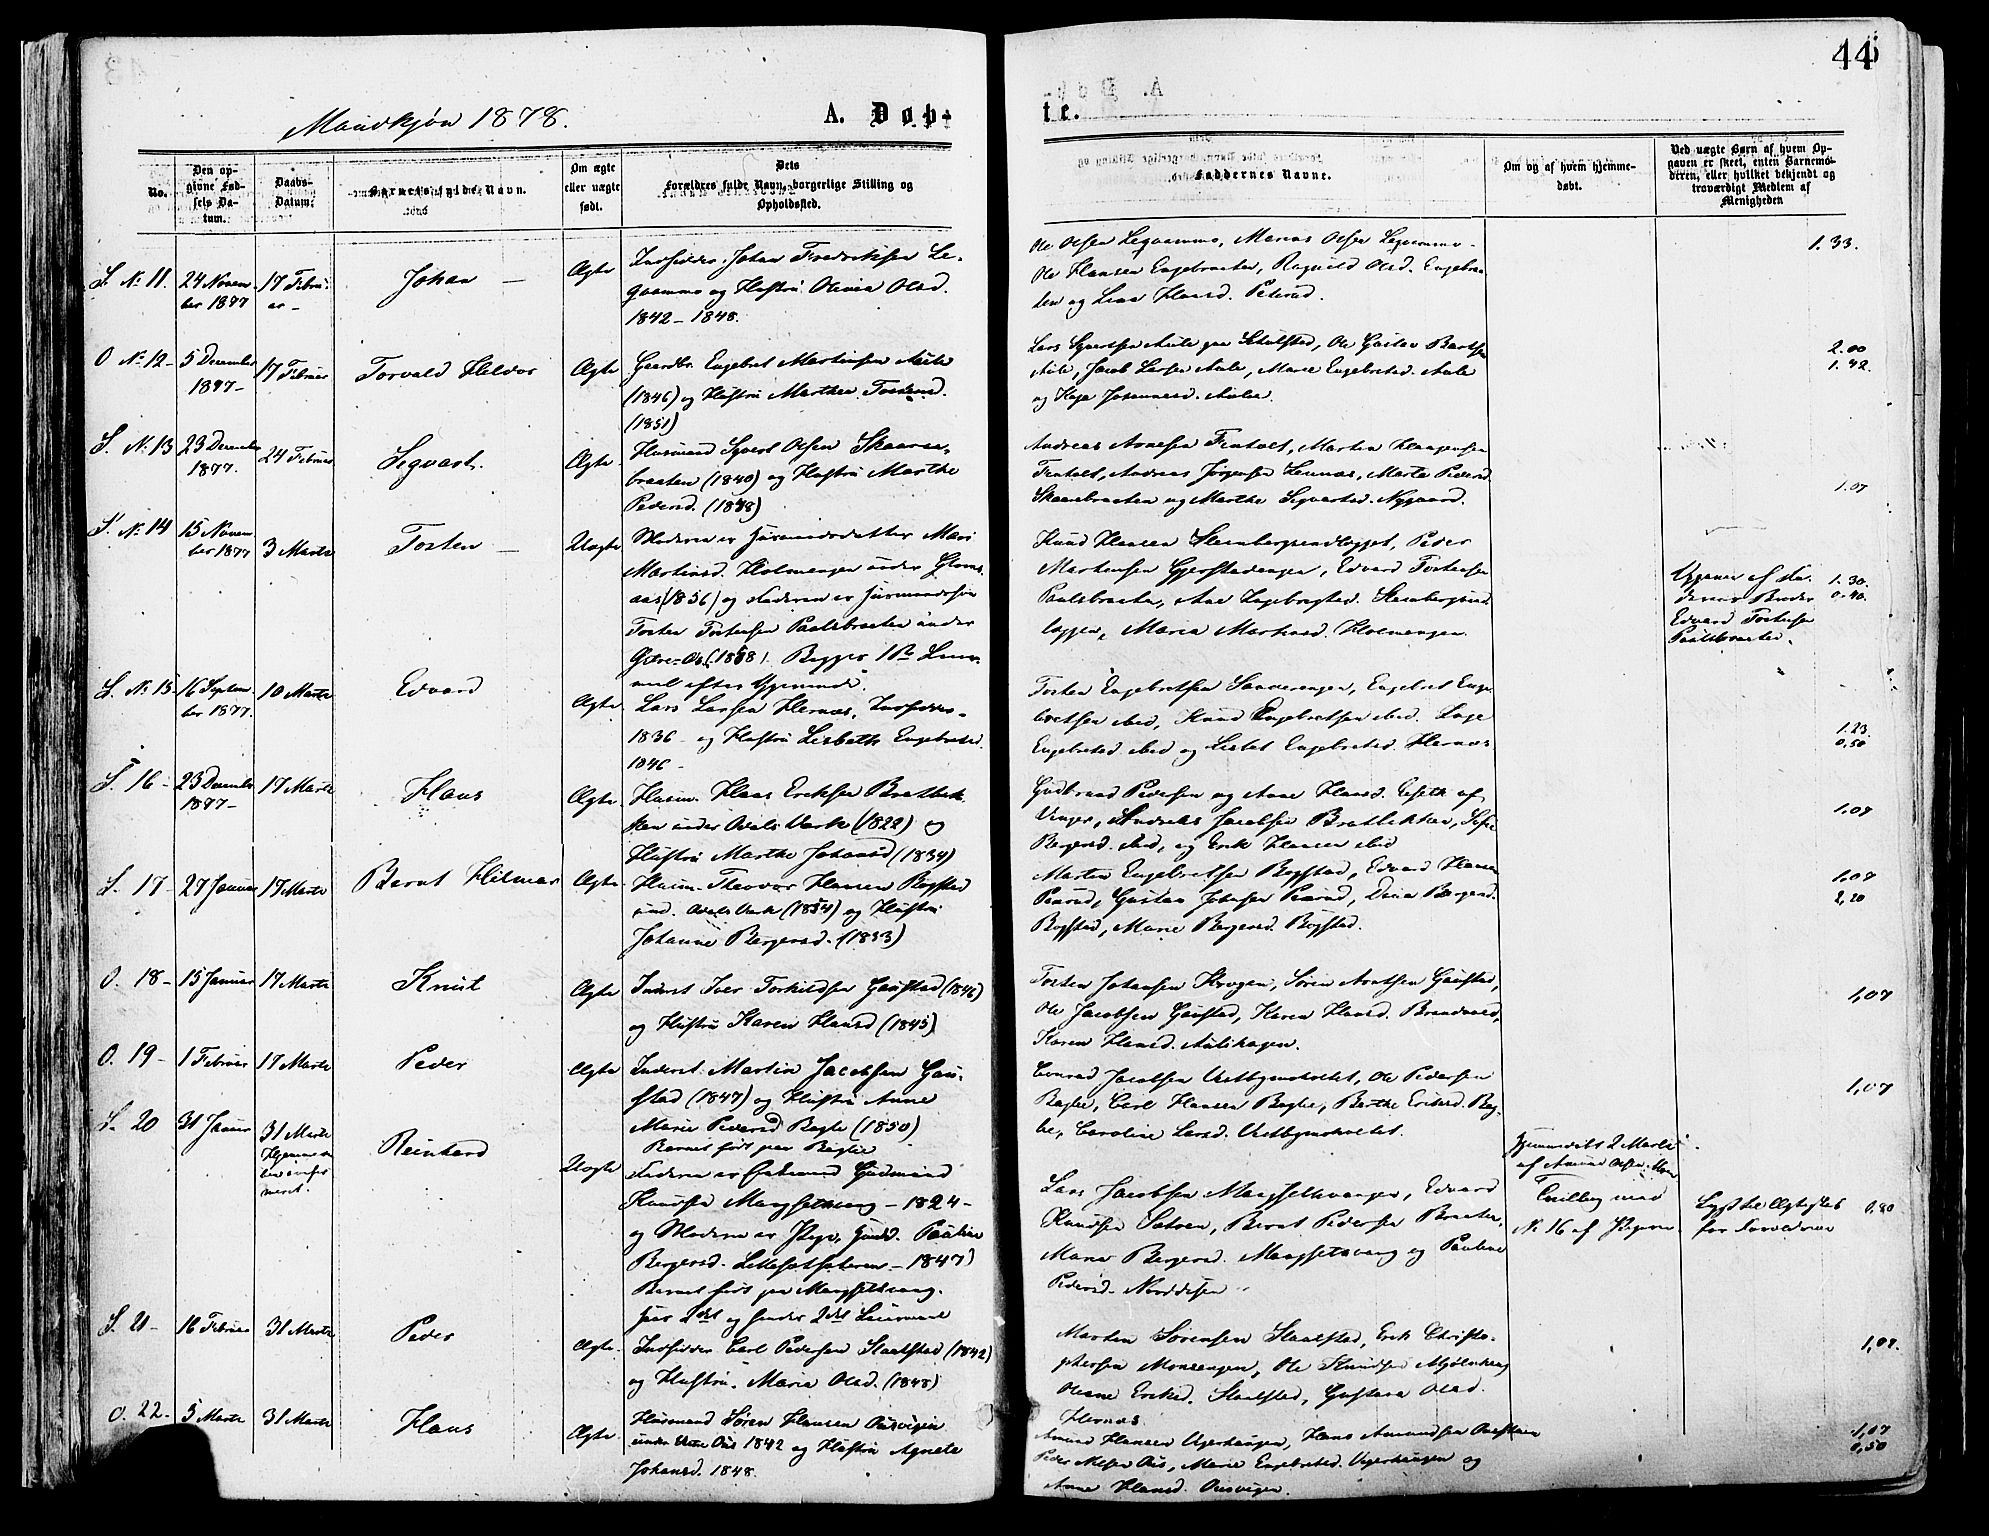 44
Mandkjøn 1878.
A. Døb-
te.
No.
Den op-
givne Fød-
sels Da-
tum.
Daabs-
Datum.
Barnets fulde Navn.
Om ægte
eller uægte
født.
Dets
Forældres fulde Navn, borgerlige Stilling og
Opholdssted.
Faddernes Navne.
Om og af hvem hjemme-
døbt.
Ved uægte Børn af hvem Op-
gaven er skeet, enten Barnemo-
deren, eller hvilket bekjendt og
troværdigt Medlem af
Menigheden
S. No 11.
24 Novem-
ber 1877
17 Febru-
ar -
Johan -
Ægte
Indsidder Johan Fredriksen Le-
gaammo og Hustru Olivia Olsd.
1842 - 1848.
Ole Olsen Legaammo, Marius Olsen Legaammo
Ole Hansen Engebraaten, Ragnild Olsd. Engebraa-
ten og Lina Hansd. Peterud.
1.33.
O No 12-
5 December
1877-
17 Februar
Torvald Heldor
Ægte
Gaardbr. Engebret Martinsen Aule
(1846) og Hustru Marthea Tostensd.
(1851)
Lars Syvertsen Aule paa Skulstad, Ole Gustav Berntsen
Aule, Jacob Larsen Aule, Marie Engebretsd. Aule
og Kaja Johannesd. Aulie.
2.00
1.42.
S. No 13
23 December
1877.
24 Februar
Segvart.
Ægte
Husmand Syvert Olsen Skaare-
braaten (1840) og Hustru Marthe
Pedersd. (1848)
Andreas Arnesen Frutolt, Martin Haagensen
Frutolt, Andreas Jørgensen Lennæs, Marte Pedersd.
Skaarebraaten og Marthe Segvartsd. Nygaard.
1.07
S. No 14
15 Novem-
ber 1877
3 Marts
Tosten -
Uægte
Moderen er Husmandsdatter Mari
Martinsd. Holmengen under Gloms-
aas (1856) og Faderen er Husmandssøn
Tosten Tostensen Paalsbraaten under
Østre-Os (1858). Begges 1ste Leier-
maal efter Opgivende.
Knud Hansen Steenbergsundløpet, Peder
Martinsen Gjerstadengen, Edvard Tostensen
Paalsbraaten, Ane Engebregtsd. Steenbergsund-
løppen, Maria Martinsd. Holmengen.
Opgivet af Fa-
derens Broder
Edvard Tostensen
Paalsbraaten.
1.30.
0.40.
S. No 15
16 Septem-
ber 1877.
10 Marts
Edvard
Ægte
Lars Larsen Hernæs, Indsidder
1836 - og Hustru Lisbeth Engebretsd.
1846 -
Tosten Engebretsen Sanderengen, Engebret Enge-
bretsen ibid, Knud Engebretsen ibid. Inge
Engebretsd. ibid og Lisbet Engebretsd. Hernæs
1.23.
0,50
S. 16-
23 December
1877-
17 Marts
Hans
Ægte
Husm. Hans Eriksen Bratbek-
ken under Odals Værk (1822) og
Hustru Marthe Johansd (1834)
Gudbrand Pedersen og Anne Hansd. Eseth af
Vinger, Andreas Jacobsen Bratbekken, Sofie
Bergersd. ibid, og Erik Hansen ibid
1.07
S. 17-
27 Januar
17 Marts
Bernt Hilmar
Ægte
Husm. Theodor Hansen Bogstad
und. Odals Værk (1854) og Hustru
Johanne Bergersd. (1853)
Marten Engebretsen Bogstad, Edvard Hansen
Perud, Gustav Johnsen Perud, Dina Bergersd.
Bogstad, Marie Bergersd. Bogstad.
1,07
2,20
O. 18-
15 Januar
17 Marts
Knut
Ægte
Inderst Iver Torkildsen Gaustad (1846)
og Hustru Karen Hansd (1845)
Tosten Johansen Krogen, Søren Arntsen Gaustad,
Ole Jacobsen Gaustad, Karen Hansd. Brandvold,
Karen Hansd. Aulihagen.
1,07
O. 19-
1 Februar
17 Marts
Peder
Ægte
Inderst Martin Jacobsen Gau-
stad (1847) og Hustru Anne
Marie Pedersd Bagle (1850)
Barnet født paa Baglie
Conrad Jacobsen Vestbymoholtet, Ole Pedersen
Baglie, Carl Hansen Baglie, Berthe Eriksd. Bag-
lie, Caroline Larsd. Vestbymoholtet.
1,07
S. 20
31 Januar
31 Marts
Hjemmedaa-
ben confir-
meret.
Reinhard
Uægte
Faderen er Enkemand Gudmund
Knudsen Mangsetvang - 1824 -
og Moderen er Pige, Gmd. Pauline
Bergersd. Lillesætsæteren - 1847)
Barnet født paa Mangsetvang.
Hans 2det og hendes 2det Leiermaal
Lars Jacobsen Mangsethvangen, Edvard
Knudsen Sætren, Bernt Pedersen Braaten,
Marie Bergersd. Mangsetvang og Pauline
Pedersd. Norddisen
Hjemmedøbt 2 Marts
af Amund Olsen Moen
Tvilling med
No 16 af Pigerne
Lyst til Ægteskab
for Forældrene
0.80
S. 21-
16 Februar
31 Marts
Peder
Ægte
Indsidder Carl Pedersen Skaalstad (1842)
og Hustru Maria Olsd. (1848)
Marten Sørensen Skaalstad, Erik Christo-
phersen Monsengen, Ole Knudsen Mjølneberg
Oleane Eriksd. Skaalstad, Gustava Olsd.
Hernæs
1,07.
O. 22-
5 Marts
31 Marts
Hans
Ægte
Husmand Søren Hansen Ousvigen
under Vestre Ous 1842 og Hustru Agnete
Johansd. 1848.
Amund Hansen Ugerhaugen, Hans Amundsen Ousteren
Peder Nilsen Ous, Marie Engebretsd. Ugerhaugen og
Anne Hansd. Ousvigen.
1,07
0,50